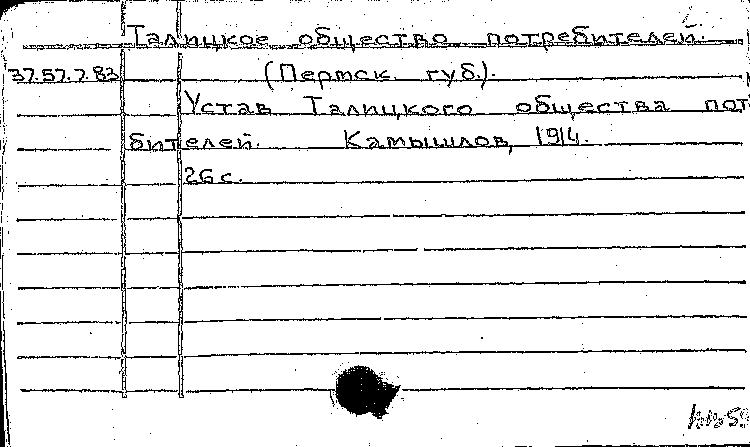 Талицкое общество потребителей.
37.57.7.83 (Пермск. губ.).
Устав Талицкого общества пот
бителей. Камышлов, 1914.
26 с.